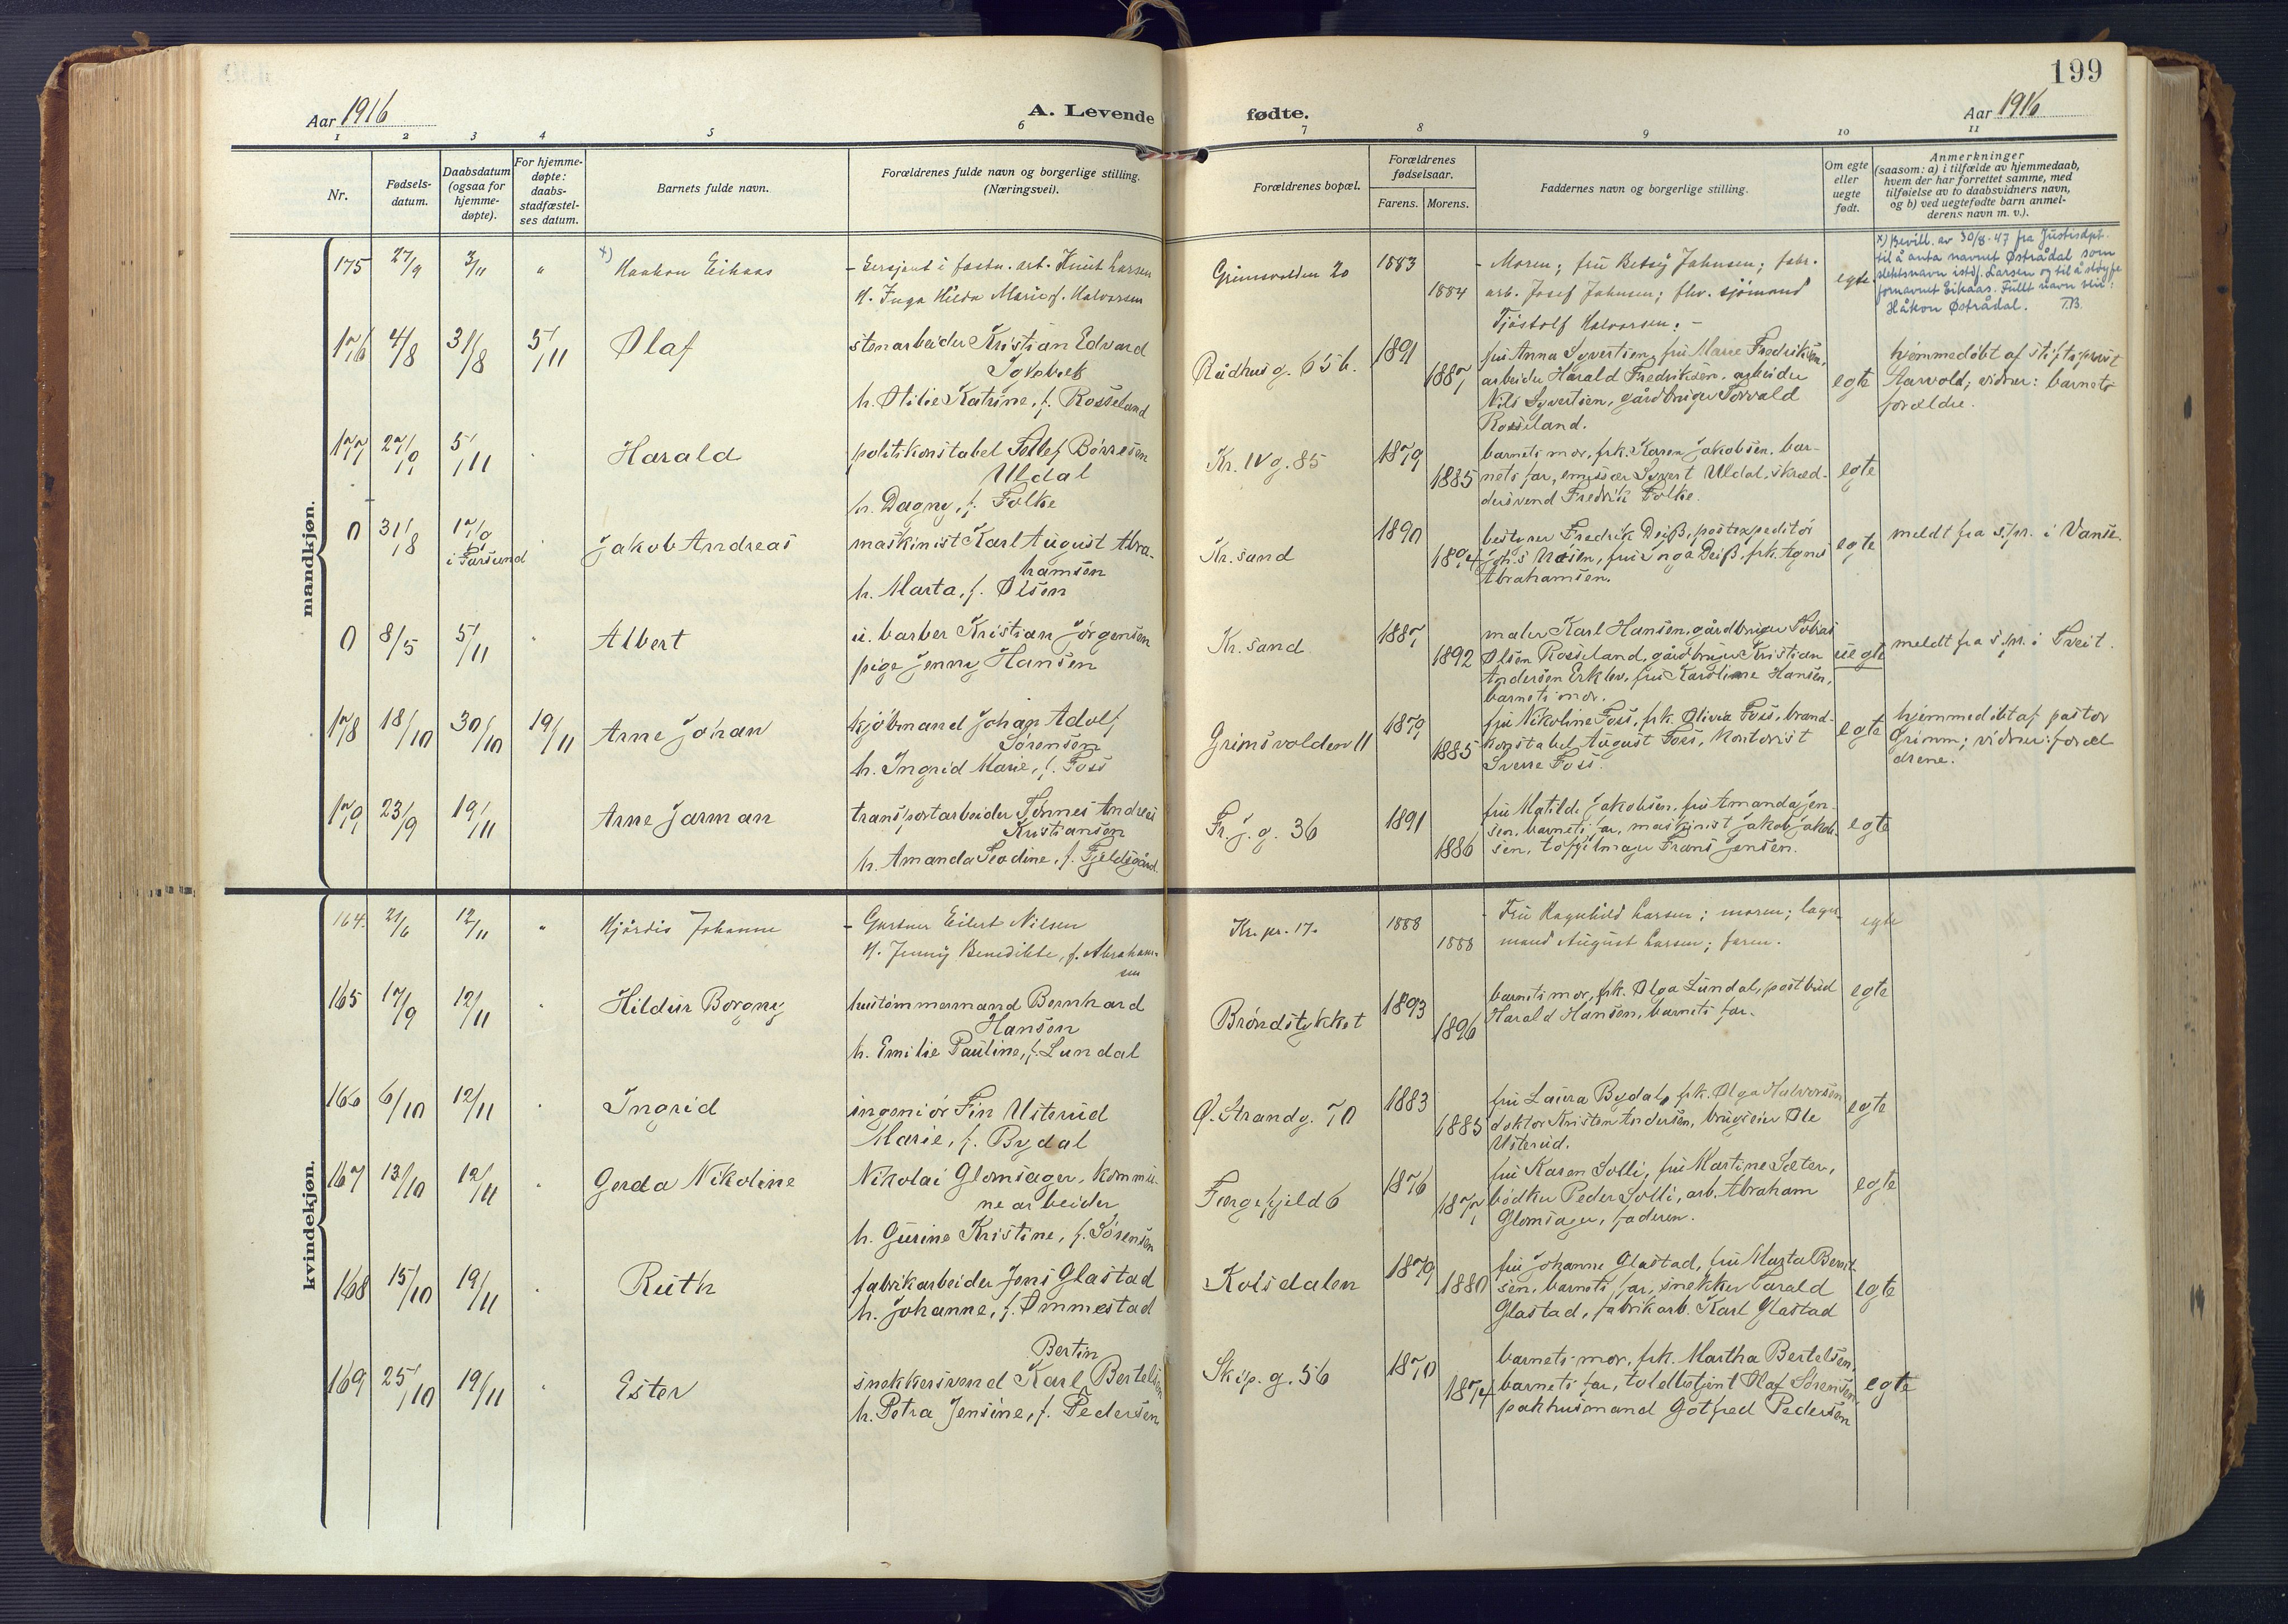 199
Aar 1916
A. Levende
fødte.
Aar 1916
1 2 3 4 5 6 7 8 9 10 11
Nr.
Fødsels-
datum.
Daabsdatum
(ogsaa for
hjemme-
døpte).
For hjemme-
døpte:
daabs-
stadfæstel-
ses datum.
Barnets fulde navn.
Forældrenes fulde navn og borgerlige stilling.
(Næringsvei).
Forældrenes bopæl.
Forældrenes
fødselsaar.
Farens. Morens.
Faddernes navn og borgerlige stilling.
Om egte
eller
uegte
født.
Anmerkninger
(saasom: a) i tilfælde av hjemmedaab,
hvem der har forrettet samme, med
tilføielse av to daabsvidners navn,
og b) ved uegtefødte barn anmel-
derens navn m. v.).
mandkjøn.
175 27/9 3/11 " x) Haakon Eikaas
- Sersjant i fæstn. art. Knut Larsen
H. Inga Hilda Marie f. Halvorsen
Grimsvolden 20 1883 1884
- Moren; fru Betsy Johnsen; fabr.
arb. Josef Johnsen; fhv. sjømand
Tjøstolf Halvorsen. -
egte
x) Bevill. av 30/8-47 fra Justisdpt.
til å anta navnet Østrådal som
slektsnavn istf. Larsen og til å sløyfe
fornavnet Eikaas. Fullt navn blir:
Håkon Østrådal. T.B.
176 4/8 31/8 5/11 Olaf
stenarbeider Kristian Edvard
h. Otilie Katrine, f. Rosseland
Rådhusg. 65 b. 1891 1887
fru Anna Syvertsen, fru Marie Fredriksen,
arbeider Harald Fredriksen, arbeider
Nils Syvertsen, gårdbruger Torvald
Rosseland.
egte
hjemmedøbt af stiftsprost
Aarvold; vidner: barnets
forældre.
177 27/9 5/11 Harald
politikonstabel Tellef Børresen
Uldal
h. Dagny, f. Folke
Kr. IV g. 85 1879 1885
barnets mor, frk. Karen Jakobsen, bar-
nets far, emissær Syvert Uldal, skræd-
dersvend Fredrik Folke.
egte
0 31/8 17/9
i Farsund
Jakob Andreas
maskinist Karl August Abra-
hamsen
h. Marta, f. Olsen
Kr.sand 1890 1894
bestyrer Fredrik Deiß, postexpeditør
Joh.s Olsen, fru Inga Deiß, frk. Agnes
Abrahamsen.
egte
meldt fra s.pr. i Vanse.
0 8/5 5/11 Albert
u. barber Kristian Jørgensen
pige Jenny Hansen
Kr.sand 1887 1892
maler Karl Hansen, gårdbruger Tobias
Olsen Rosseland, gårdbruger Kristian
Andersen Erklev, fru Karoline Hansen,
barnets mor.
uegte
meldt fra s.pr. i Tveit.
178 18/10 30/10 19/11 Arne Johan
kjøbmand Johan Adolf
Sørensen
h. Ingrid Marie, f. Foss
Grimsvolden 11 1879 1885
fru Nikoline Foss, frk. Olivia Foss, brand-
konstabel August Foss, kontorist
Sverre Foss.
egte
hjemmedøbt af pastor
Grimm; vidner: foræl
drene.
179 23/9 19/11 Arne Jarman
transportarbeider Tønnes Andreas
Kristiansen
h. Amanda Teodine, f. Fjeldsgård
Fr. j. g. 36 1891 1886
fru Matilde Jakobsen, fru Amanda Jen-
sen, barnets far, maskinist Jakob Jakob-
sen, tøffelmager Frans Jensen.
egte
kvindekjøn.
164. 21/6 12/11 " Hjørdis Johanne
- Gartner Eilert Nilsen
H. Jenny Benedikte, f. Abraham-
sen
Kr. pr. 17. 1888 1888
- Fru Ragnhild Larsen; moren; lager-
mand August Larsen; faren.
egte
165 17/9 12/11 Hildur Borgny
hustømmermand Bernhard
Hansen
h. Emilie Pauline, f. Lundal
Brøndstykket 1893 1896
barnets mor, frk. Olga Lundal, postbud
Harald Hansen, barnets far.
egte
166 6/10 12/11 Ingrid
ingeniør Fin Usterud
Marie, f. Bydal
Ø. Strandg. 70 1883 1885
fru Laura Bydal, frk. Olga Halvorsen
doktor Kristen Andersen, brugseier Ole
Usterud.
egte
167 13/10 12/11 Gerda Nikoline
Nikolai Glomsager, kommu-
nearbeider
h. Gurine Kristine, f. Sørensen
Færgefjeld 6 1876 1877
fru Karen Solli, fru Martine Sæter,
bødker Peder Solli, arb. Abraham
Glomsager, faderen.
egte
168 15/10 19/11 Ruth
fabrikarbeider Jens Glastad
h. Johanne, f. Ommestad
Kolsdalen 1879 1880
fru Johanne Glastad, fru Marta Bernt-
sen, barnets far, snekker Tarald
Glastad, fabrikarb. Karl Glastad
egte
169 25/10 19/11 Ester
Bertin
snekkersvend Karl Bertelsen
h. Petra Jensine, f. Pedersen
Skip. g. 56 1870 1874
barnets mor, frk. Martha Bertelsen,
barnets far, toldbetjent Olaf Sørensen,
pakhusmand Gotfred Pedersen
egte